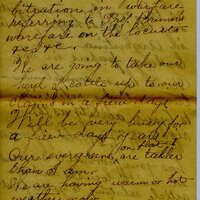 bitration in warfare
referring to Prof. Bruner's
warefare on the locusts
etc.
We are going to take our
herd of cattle up to our
claims in a few days
Will be very busy for
a few days
you that I
Our evergreens are taller
than I am.
We are having warm or hot
weather now